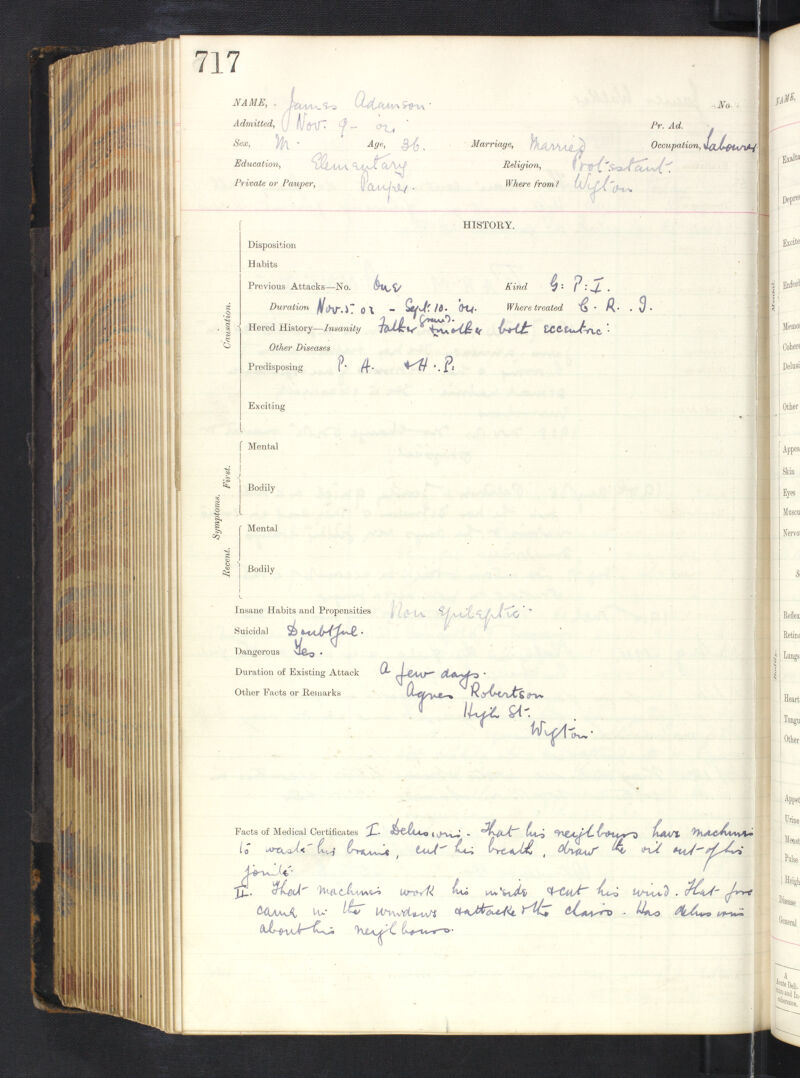 717
NAME, James Adamson No.
Admitted, Nov. 9 - '04 Pr. Ad.
Sex, M. Age, 36. Marriage, Married Occupation, Labourer
Education, Elementary Religion, Protestant.
Private or Pauper, Pauper. Where from? Wigton
HISTORY.
Disposition
Habits
Previous Attacks—No. One Kind G: P: I.
Duration Nov. 5. 02 - Sept. 10. '04. Where treated C. R. I.
Hered History—Insanity Father & Grand mother both eccentric:
Other Diseases
Predisposing P. A. & H. P.
Exciting
Causation.
Mental
Bodily
First.
Symptoms.
Mental
Bodily
Recent.
Insane Habits and Propensities Non epileptic
Suicidal Doubtful.
Dangerous Yes.
Duration of Existing Attack A few days.
Other Facts or Remarks Agnes Robertson
High St.
Wigton.
Facts of Medical Certificates I. Delusions. That his neighbours have machines
to waste his brains, cut his breath, draw the oil out of his
joints.
II. That machines work his inside & cut his wind. That
came in the windows & attacked the chairs. Has delusions
about his neighbours.
NAME,
Mental
Bodily
Skin
Eyes
Lungs
Heart
Other
Urine
Pulse
General
A